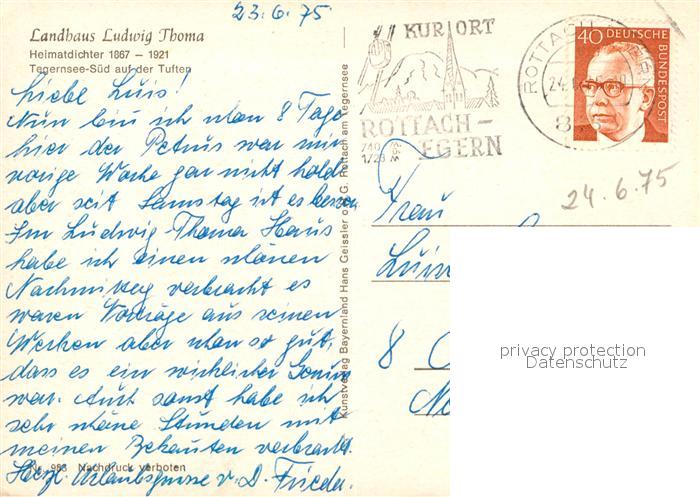 23.6.75
Landhaus Ludwig Thoma
Heimatdichter 1867 – 1921
Tegernsee-Süd auf der Tuften
Liebe Luis!
Nun bin ich schon 8 Tage
hier der Petrus war mir
vorige Woche gar nicht hold
aber seit Samstag ist es besser
Im Ludwig-Thoma Haus
habe ich einen schönen
Nachmittag verbracht es
waren Vorträge aus seinen
Werken aber schon so gut,
dass es ein wirklicher Genuss
war. Auch sonst habe ich
sehr schöne Stunden mit
meinen Bekannten verbracht.
Herzl. Urlaubsgrüsse v. D. Frieda.
Nr. 988 Nachdruck verboten
Kunstverlag Bayernland Hans Geissler oHG. Rottach am Tegernsee
KURORT
ROTTACH-
EGERN
740
1723 m
ROTTACH
24.
8
40 DEUTSCHE
BUNDESPOST
24.6.75
Frau
Luis
8
privacy protection
Datenschutz